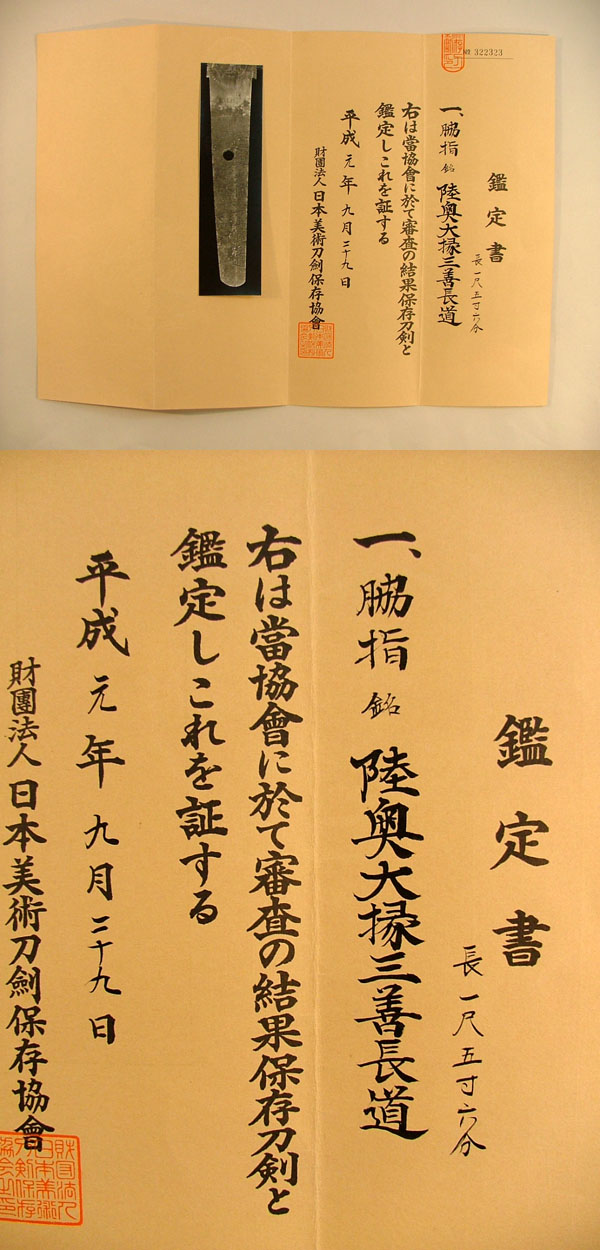 № 322323
鑑定書
長一尺五寸六分
一、脇指 銘 陸奥大掾三善長道
右は當協會に於て審査の結果保存刀剣と
鑑定しこれを証する
平成元年九月二十九日
財團法人日本美術刀劍保存協會
鑑定書
長一尺五寸六分
一、脇指 銘 陸奥大掾三善長道
右は當協會に於て審査の結果保存刀剣と
鑑定しこれを証する
平成元年九月二十九日
財團法人日本美術刀劍保存協會